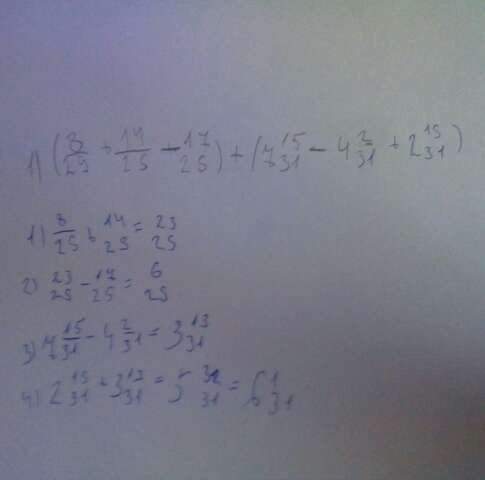 1) (9/25 + 14/25 - 17/25) + (7 15/31 - 4 2/31 + 2 19/31)
1) 9/25 + 14/25 = 23/25
2) 23/25 - 17/25 = 6/25
3) 7 15/31 - 4 2/31 = 3 13/31
4) 2 19/31 + 3 13/31 = 5 32/31 = 6 1/31